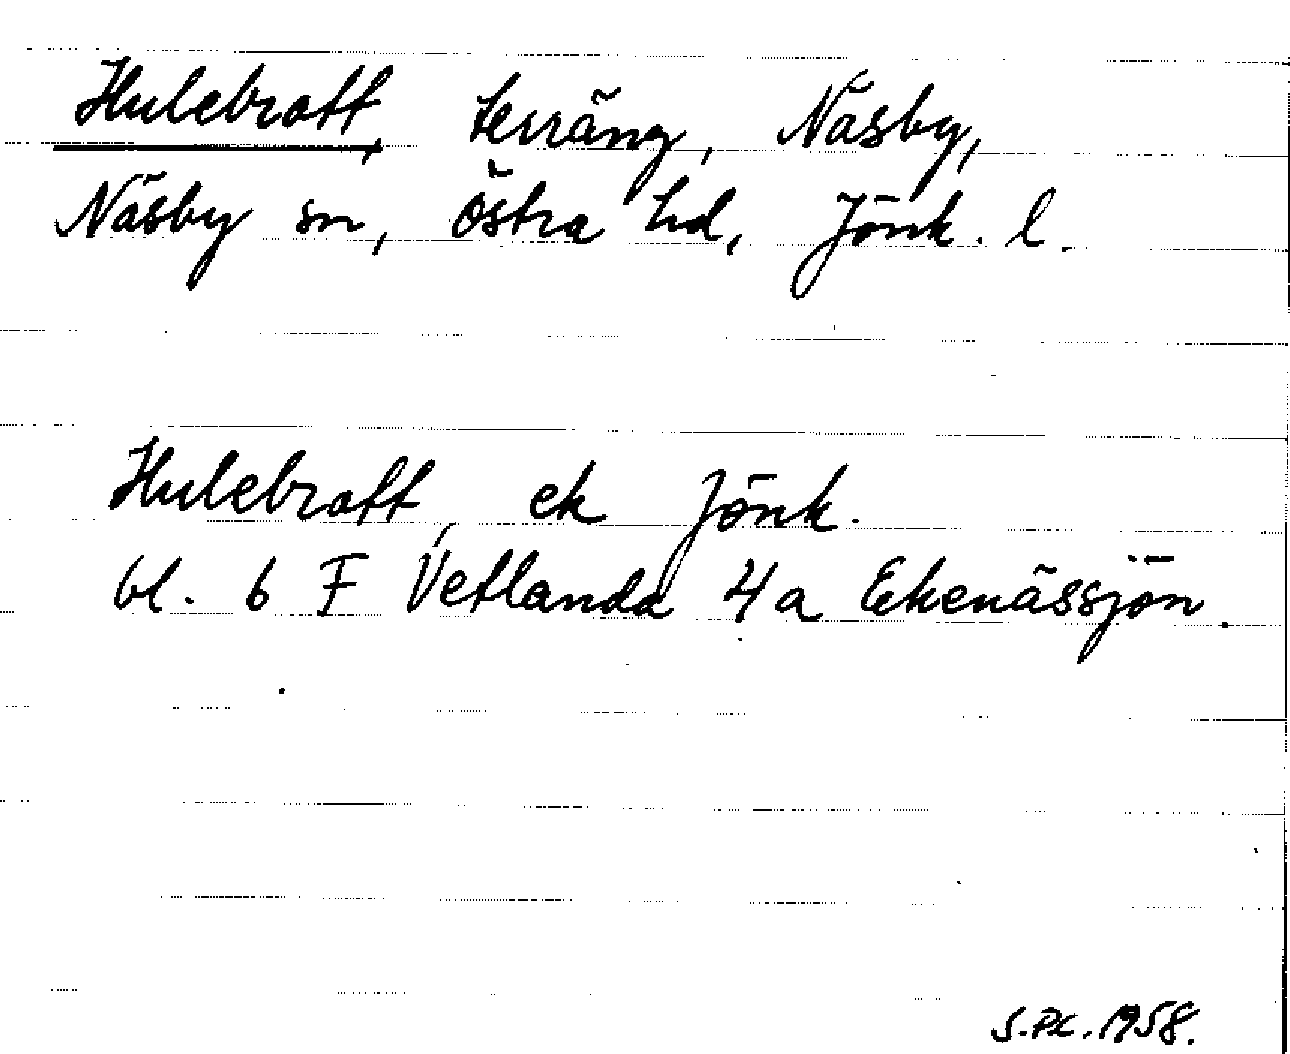 Hulebratt, terräng, Näsby,
Näsby sn, östra hd, Jönk. l.
Hulebratt, ek Jönk.
bl. 6 F Vetlanda 4a Ekenässjön.
1958.